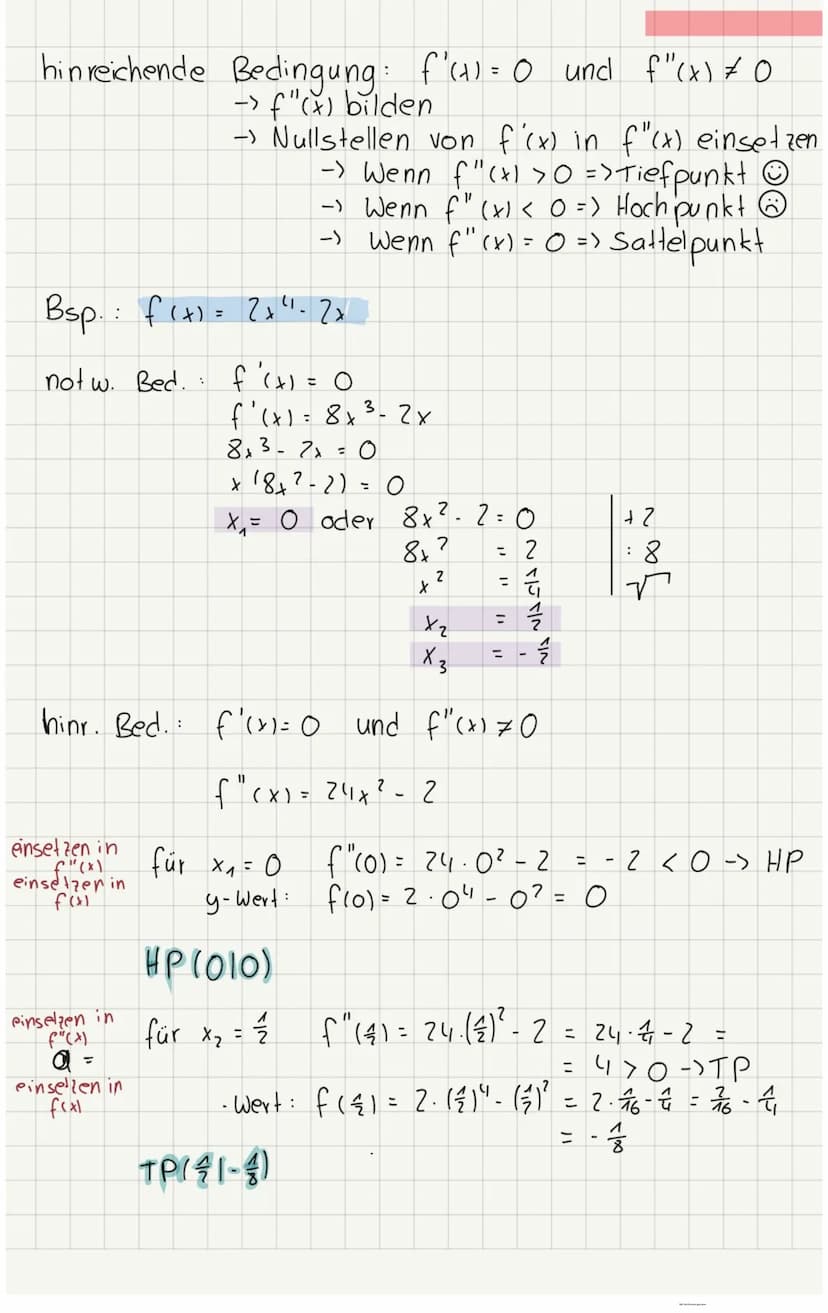 hinreichende Bedingung: f'(x) = 0 und f''(x) ≠ 0
-> f''(x) bilden
-> Nullstellen von f'(x) in f''(x) einsetzen
-> Wenn f''(x) > 0 => Tiefpunkt ☺
-> Wenn f''(x) < 0 => Hochpunkt ☹
-> Wenn f''(x) = 0 => Sattelpunkt
Bsp.: f(x) = 2x⁴ - 2x
notw. Bed.: f'(x) = 0
f'(x) = 8x³ - 2x
8x³ - 2x = 0
x (8x² - 2) = 0
x₁ = 0 oder 8x² - 2 = 0 | + 2
8x² = 2 | : 8
x² = 1/4 | √
x₂ = 1/2
x₃ = - 1/2
hinr. Bed.: f'(x) = 0 und f''(x) ≠ 0
f''(x) = 24x² - 2
einsetzen in f''(x) für x₁ = 0 f''(0) = 24 · 0² - 2 = - 2 < 0 -> HP
einsetzen in f(x) y-Wert: f(0) = 2 · 0⁴ - 0² = 0
HP(0|0)
einsetzen in f''(x) für x₂ = 1/2 f''(1/2) = 24 · (1/2)² - 2 = 24 · 1/4 - 2 =
= 4 > 0 -> TP
einsetzen in f(x) · Wert: f(1/2) = 2 · (1/2)⁴ - (1/2)² = 2 · 1/16 - 1/4 = 2/16 - 1/4
= - 1/8
TP(1/2|-1/8)